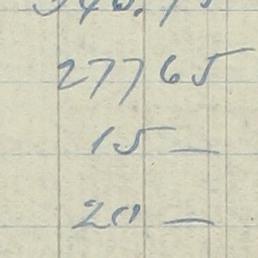 27765
15 —
20 —